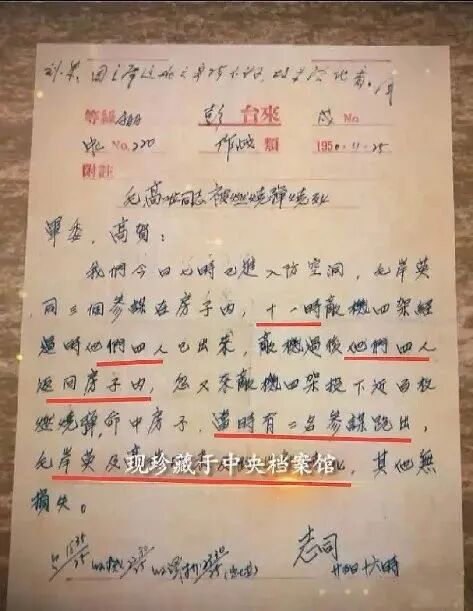 等級 彭 台來 戌 No
No.220 作战 類 1950-11-25
附註
同志被燃燒彈燒死
軍委,高賀:
我們今日七時已進入防空洞,毛岸英
同三個參謀在房子内,十一時敵機四架經
過時他們四人已出來,敵機過後他們四人
返回房子内,忽又來敵機四架投下近百枚
燃燒彈,命中房子,當時有二名參謀跑出,
毛岸英及高 其他無
现珍藏于中央档案馆
損失。
志司
十六時